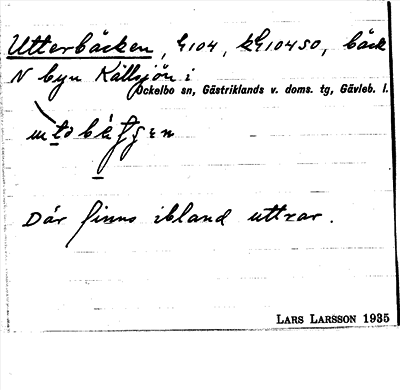 Utterbäcken, G104, kG10450, bäck
N byn Källsjön i
Ockelbo sn, Gästriklands v. doms. tg, Gävleb. l.
Där finns ibland uttrar.
LARS LARSSON 1935